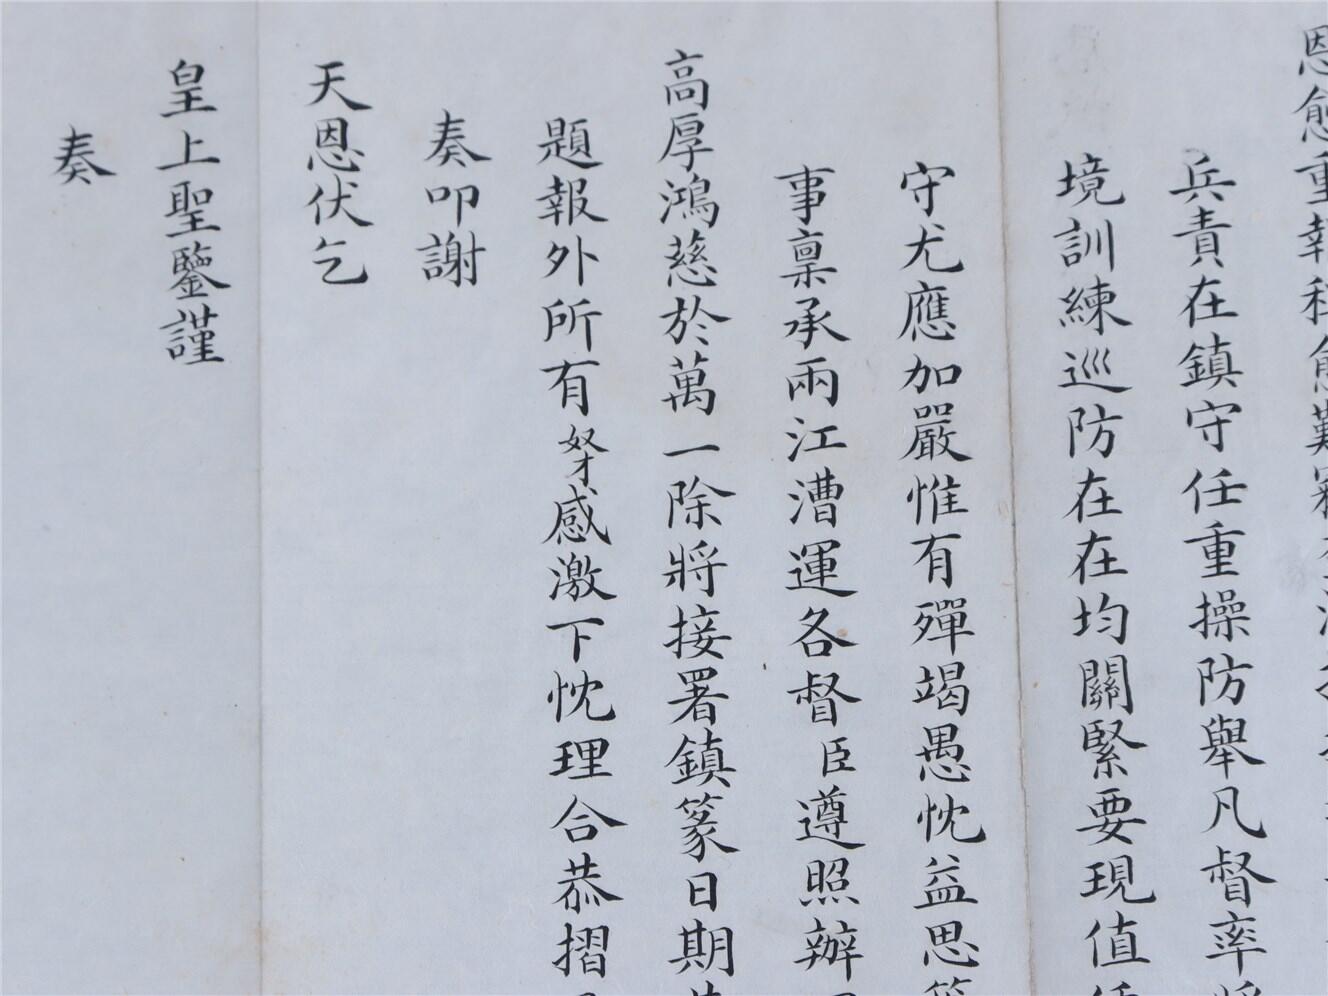 恩愈重報稱愈難竊
兵責在鎮守任重操防舉凡督率將
境訓練巡防在在均關緊要現值
守尤應加嚴惟有殫竭愚忱益思
事稟承兩江漕運各督臣遵照辦
高厚鴻慈於萬一除將接署鎮篆日期
題報外所有奴才感激下忱理合恭摺
奏叩謝
天恩伏乞
皇上聖鑒謹
奏